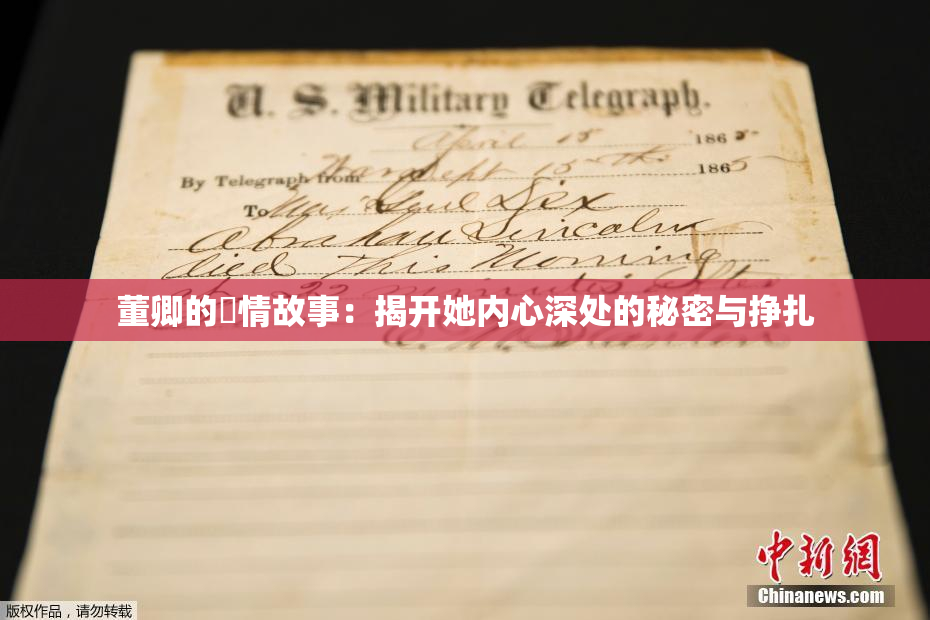 U. S. Military Telegraph.
April 15 1865
By Telegraph from War Dept 15th 1865
To Maj Genl Dix
Abraham Lincoln
died This Morning
at 22 minutes after
董卿的情故事：揭开她内心深处的秘密与挣扎
E. M. Stanton
中新网
Chinanews.com
版权作品，请勿转载